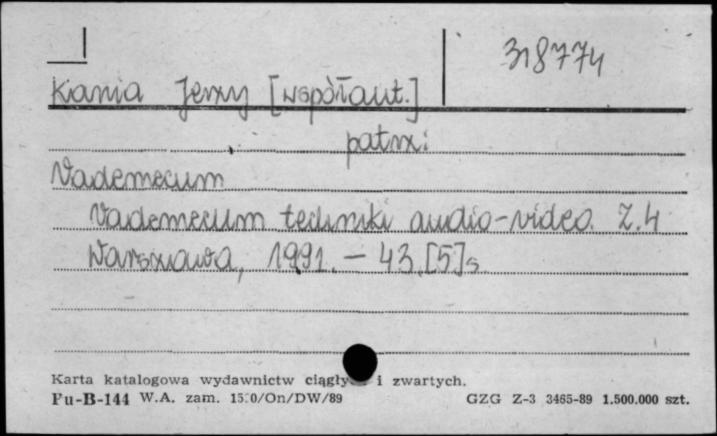 318774
Kania Jerzy [współaut.]
patrz:
Vademecum
Vademecum techniki audio-video. Z.4
Warszawa, 1991. – 43,[5]s
Karta katalogowa wydawnictw ciągłych i zwartych.
Pu-B-144 W.A. zam. /On/DW/89 GZG Z-3 3465-89 1.500.000 szt.